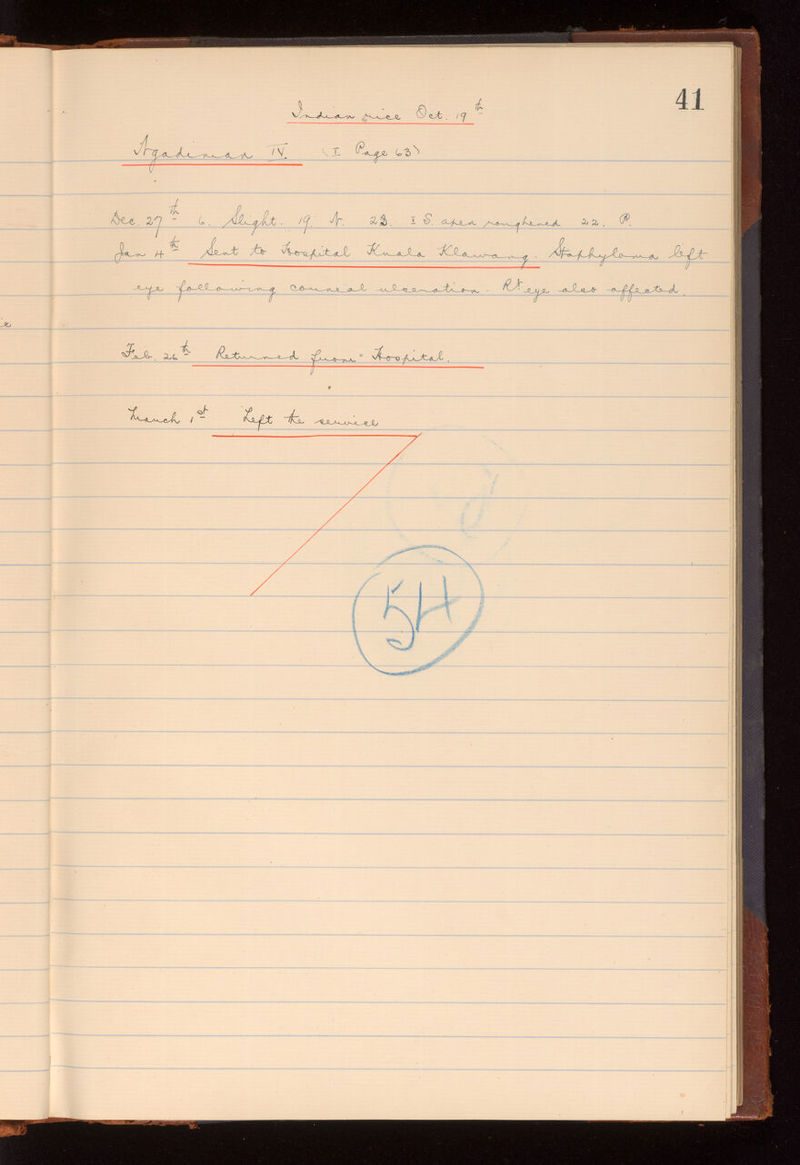 41
Indian rice Oct. 19th
Ngadiman IV. (I Page 63)
Dec 27th 6. Slight. 19. N. 23. I S. apex roughened 22. P.
Jan 4th Sent to Hospital Kuala Klawang. Staphyloma left
eye following corneal ulceration. Rt eye also affected.
Feb. 26th Returned from Hospital.
March 1st Left the service
54